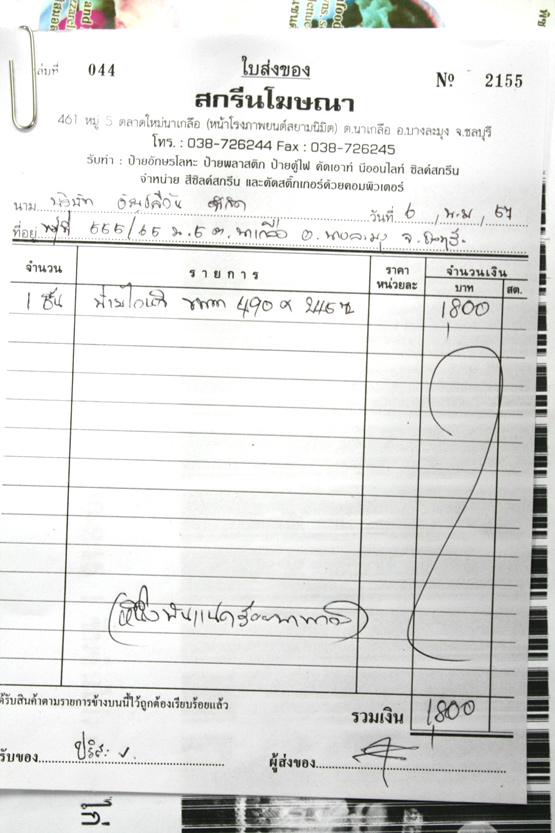 เล่มที่ 044 ใบส่งของ Nº 2155
สกรีนโฆษณา
461 หมู่ 5 ตลาดใหม่นาเกลือ (หน้าโรงภาพยนต์สยามนิมิต) ต.นาเกลือ อ.บางละมุง จ.ชลบุรี
โทร. : 038-726244 Fax : 038-726245
รับทำ : ป้ายอักษรโลหะ ป้ายพลาสติก ป้ายตู้ไฟ คัตเอาท์ นีออนไลท์ ซิลค์สกรีน
จำหน่าย สีซิลค์สกรีน และตัดสติ๊กเกอร์ด้วยคอมพิวเตอร์
นาม บริษัท จำกัด วันที่ 6 พ.ม.
ที่อยู่ 555/65 ม.5 ต.นาเกลือ อ.บางละมุง จ.ชลบุรี
จำนวน รายการ ราคาหน่วยละ จำนวนเงิน บาท สต.
1 ชิ้น ขนาด 490 x 245 1800
(หนึ่งพันแปดร้อยบาทถ้วน)
ได้รับสินค้าตามรายการข้างบนนี้ไว้ถูกต้องเรียบร้อยแล้ว
รวมเงิน 1800
รับของ ผู้ส่งของ